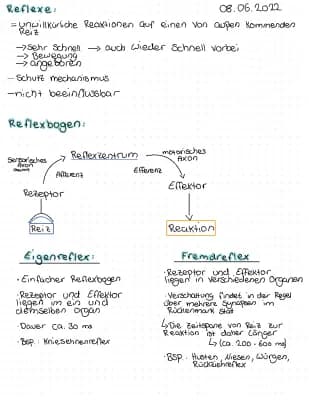 Reflexe:
08.06.2022
= unwillkürliche Reaktionen auf einen von außen kommenden
Reiz
→ sehr schnell → auch wieder schnell vorbei
→ Bewegung
→ angeboren
- Schutz mechanismus
- nicht beeinflussbar
Reflexbogen:
Sensorisches
Axon
Reflexzentrum
motorisches
Axon
Afferenz
Efferenz
Rezeptor
Effektor
Reiz
Reaktion
Eigenreflex:
· Einfacher Reflexbogen
· Rezeptor und Effektor
liegen im ein und
demselben Organ
· Dauer ca. 30 ms
· Bsp.: Kniesehnenreflex
Fremdreflex
· Rezeptor und Effektor
liegen in verschiedenen Organen
· Verschaltung findet in der Regel
über mehrere Synapsen im
Rückenmark statt
↳ Die Zeitspanne von Reiz zur
Reaktion ist daher länger
↳ (ca. 200-600 ms)
· BSP.: Husten, Niesen, Würgen,